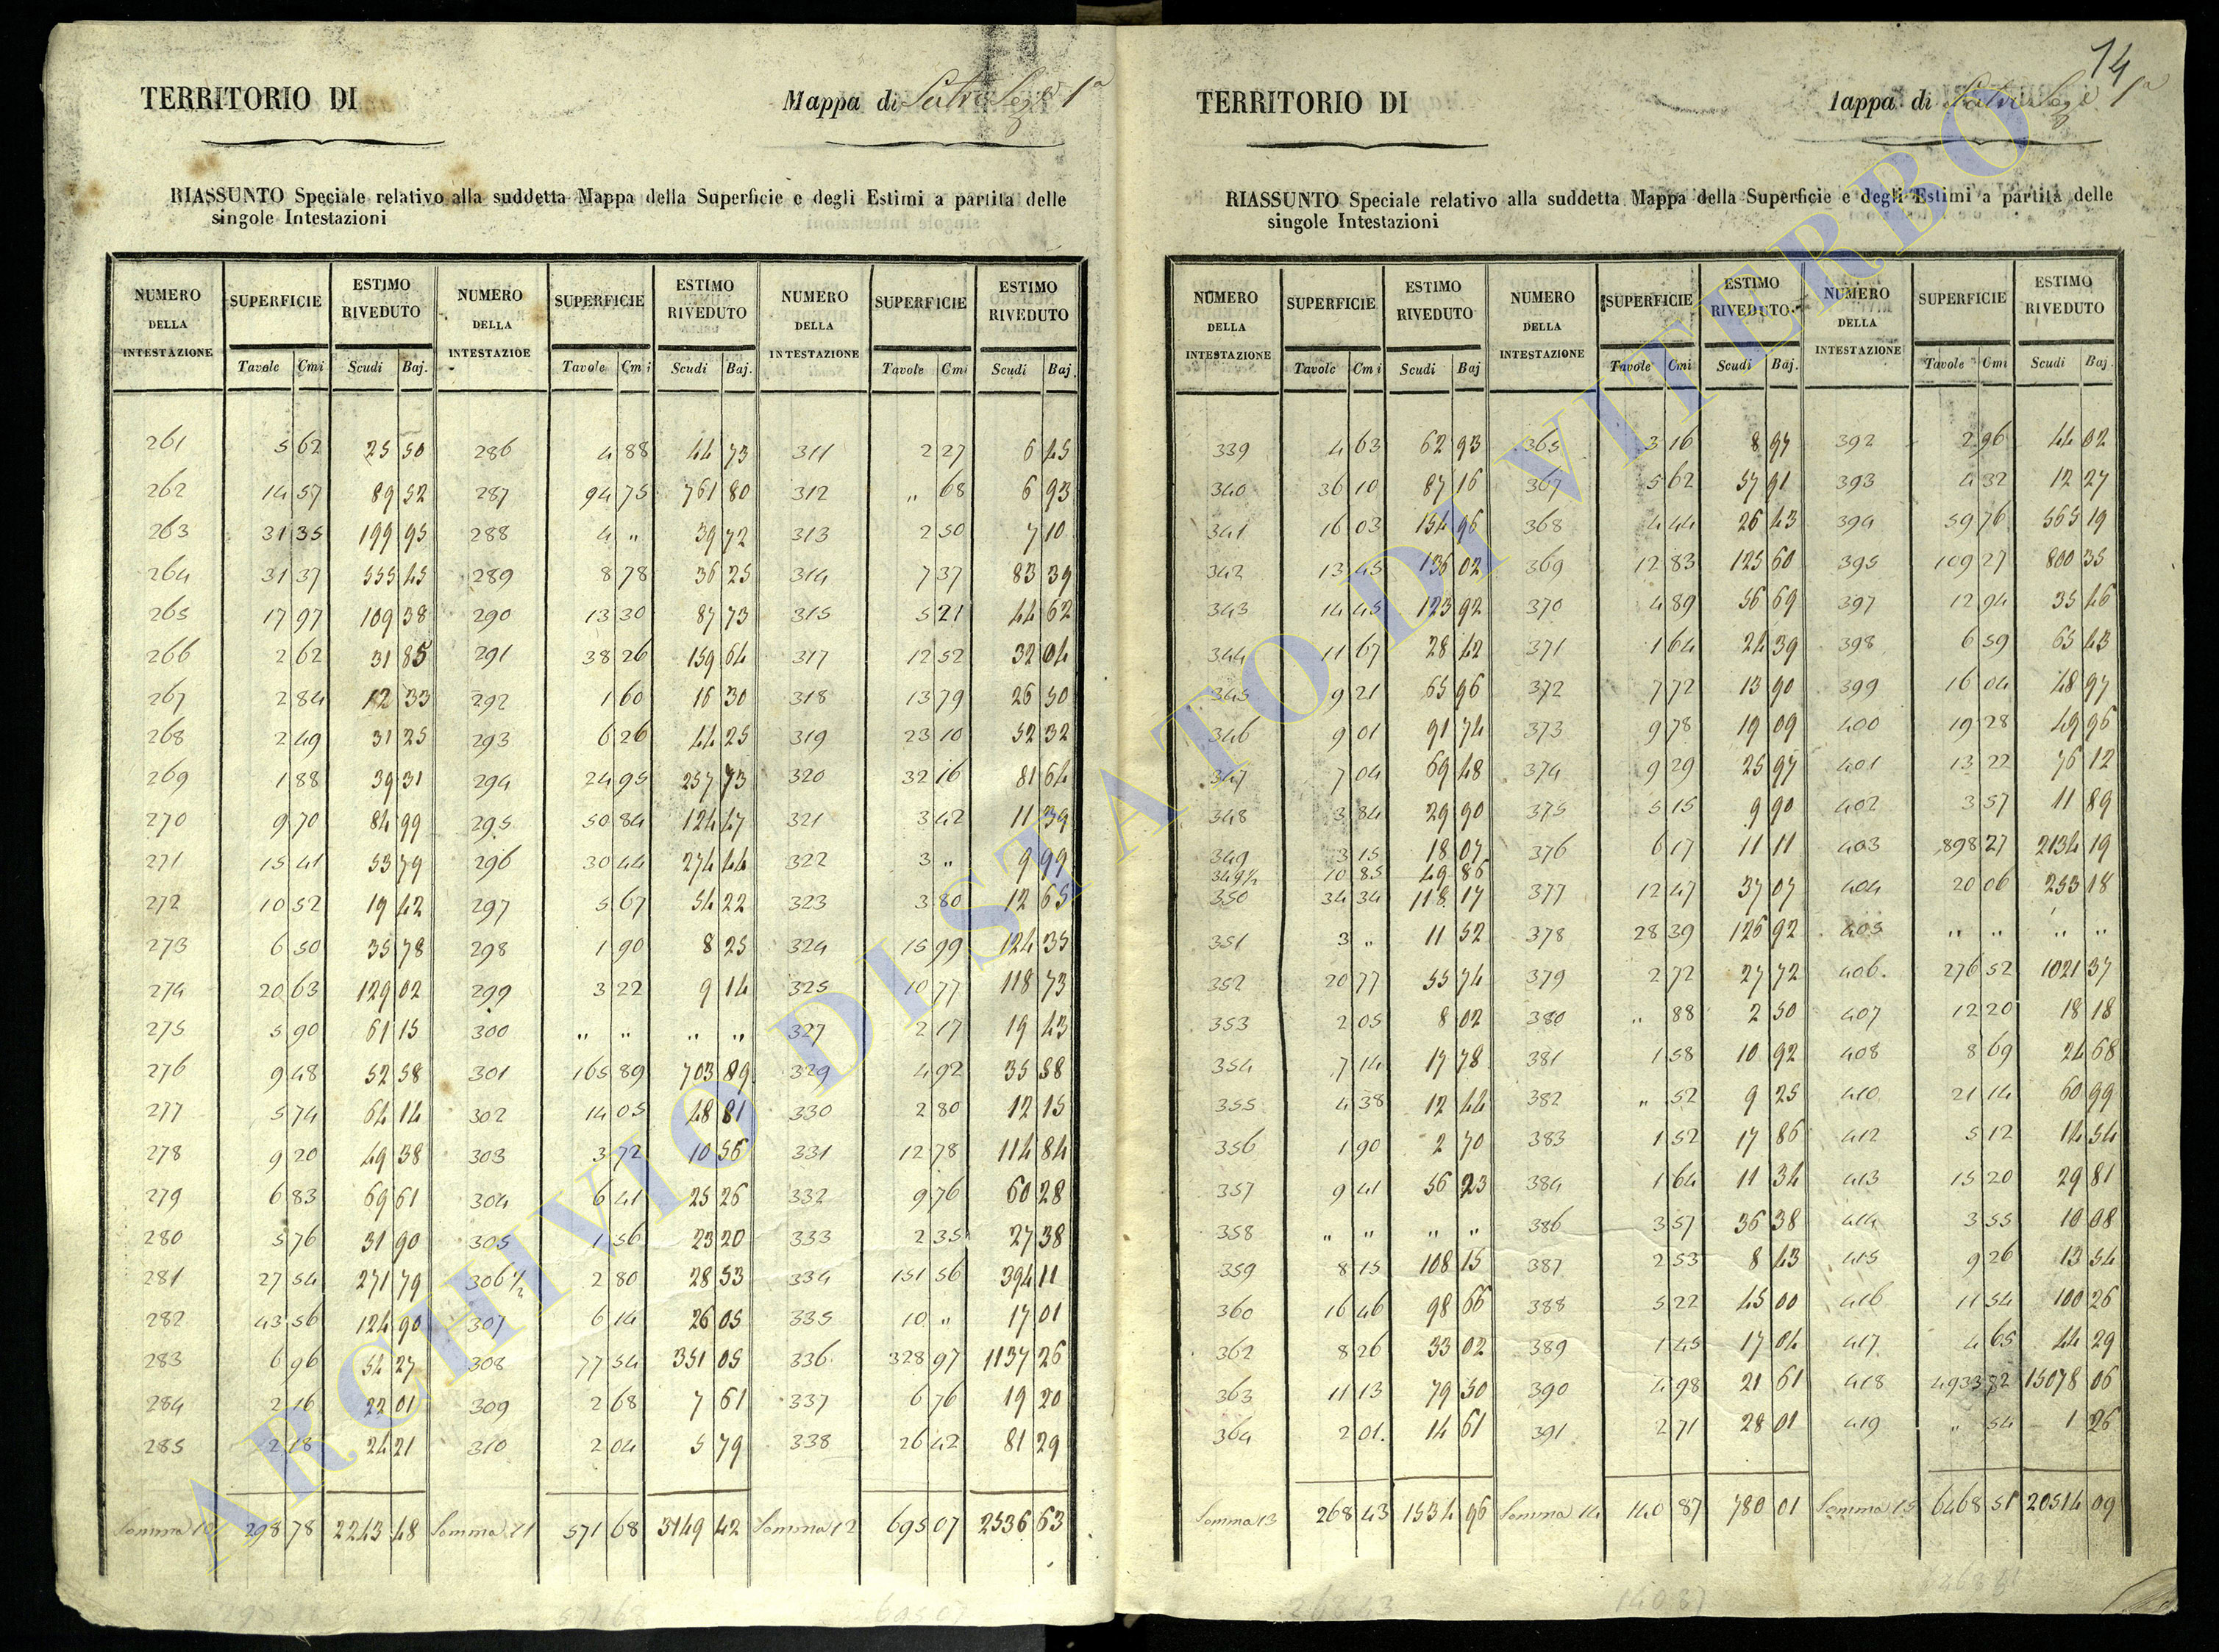 TERRITORIO DI
Mappa di Sutri Sez.e 1a
RIASSUNTO Speciale relativo alla suddetta Mappa della Superficie e degli Estimi a partita delle
singole Intestazioni
NUMERO DELLA INTESTAZIONE SUPERFICIE ESTIMO RIVEDUTO NUMERO DELLA INTESTAZIOE SUPERFICIE ESTIMO RIVEDUTO NUMERO DELLA INTESTAZIONE SUPERFICIE ESTIMO RIVEDUTO
Tavole Cmi Scudi Baj. Tavole Cmi Scudi Baj. Tavole Cmi Scudi Baj.
261 5 62 25 50 286 4 88 44 73 311 2 27 6 45
262 14 57 89 52 287 94 75 761 80 312 " 68 6 93
263 31 35 199 95 288 4 " 39 72 313 2 50 7 10
264 31 37 555 45 289 8 78 36 25 314 7 37 83 39
265 17 97 109 38 290 13 30 87 73 315 5 21 44 62
266 2 62 31 85 291 38 26 159 64 317 12 52 32 04
267 2 84 12 33 292 1 60 16 30 318 13 79 26 50
268 2 49 31 25 293 6 26 44 25 319 23 10 52 32
269 1 88 39 31 294 24 95 257 73 320 32 16 81 64
270 9 70 84 99 295 50 84 124 47 321 3 42 11 39
271 15 41 53 79 296 30 44 274 44 322 3 " 9 99
272 10 52 19 42 297 5 67 54 22 323 3 80 12 65
273 6 50 35 78 298 1 90 8 25 324 15 99 124 35
274 20 63 129 02 299 3 22 9 14 325 10 77 118 73
275 5 90 61 15 300 " " " " 327 2 17 19 43
276 9 48 52 58 301 165 89 703 89 329 4 92 35 58
277 5 74 64 14 302 14 05 48 81 330 2 80 12 15
278 9 20 49 38 303 3 72 10 56 331 12 78 114 84
279 6 83 69 61 304 6 41 25 26 332 9 76 60 28
280 5 76 31 90 305 1 56 23 20 333 2 35 27 38
281 27 54 271 79 306 1/2 2 80 28 53 334 151 56 394 11
282 43 56 124 90 307 6 14 26 05 335 10 " 17 01
283 6 96 54 27 308 77 54 351 05 336 328 97 1137 26
284 2 16 22 01 309 2 68 7 61 337 6 76 19 20
285 2 18 24 21 310 2 04 5 79 338 26 42 81 29
Somma 10 298 78 2243 48 Somma 11 571 68 3149 42 Somma 12 695 07 2536 63
298 78 571 68 695 07
14
TERRITORIO DI
Mappa di Sutri Sez.e 1a
RIASSUNTO Speciale relativo alla suddetta Mappa della Superficie e degli Estimi a partita delle
singole Intestazioni
NUMERO DELLA INTESTAZIONE SUPERFICIE ESTIMO RIVEDUTO NUMERO DELLA INTESTAZIONE SUPERFICIE ESTIMO RIVEDUTO NUMERO DELLA INTESTAZIONE SUPERFICIE ESTIMO RIVEDUTO
Tavole Cmi Scudi Baj Tavole Cmi Scudi Baj. Tavole Cmi Scudi Baj.
339 4 63 62 93 365 3 16 8 97 392 2 96 44 02
340 36 10 87 16 367 5 62 57 91 393 4 32 12 27
341 16 03 154 96 368 4 44 26 43 394 59 76 565 19
342 13 45 136 02 369 12 83 125 60 395 109 27 800 35
343 14 45 123 92 370 4 89 56 69 397 12 94 35 46
344 11 67 28 42 371 1 64 24 39 398 6 59 65 43
345 9 21 65 96 372 7 72 13 90 399 16 04 48 97
346 9 01 91 74 373 9 78 19 09 400 19 28 49 96
347 7 04 69 48 374 9 29 25 97 401 13 22 76 12
348 3 84 29 90 375 5 15 9 90 402 3 57 11 89
349 3 15 18 07 376 6 17 11 11 403 898 27 2134 19
349 1/2 10 85 49 86
350 34 34 118 17 377 12 47 37 07 404 20 06 253 18
351 3 " 11 52 378 28 39 126 92 405 " " " "
352 20 77 55 74 379 2 72 27 72 406 276 52 1021 37
353 2 05 8 02 380 " 88 2 50 407 12 20 18 18
354 7 14 17 78 381 1 58 10 92 408 8 69 24 68
355 4 38 12 44 382 " 52 9 25 410 21 14 60 99
356 1 90 2 70 383 1 52 17 86 412 5 12 14 54
357 9 41 56 23 384 1 64 11 34 413 15 20 29 81
358 " " " " 386 3 57 36 38 414 3 55 10 08
359 8 15 108 15 387 2 53 8 43 415 9 26 13 54
360 16 46 98 66 388 5 22 45 00 416 11 54 100 26
362 8 26 33 02 389 1 45 17 04 417 4 65 44 29
363 11 13 79 50 390 4 98 21 61 418 4933 72 15078 06
364 2 01 14 61 391 2 71 28 01 419 " 54 1 26
Somma 13 268 43 1534 96 Somma 14 140 87 780 01 Somma 15 6468 51 20514 09
268 43 140 87 6468 51
ARCHIVIO DI STATO DI VITERBO